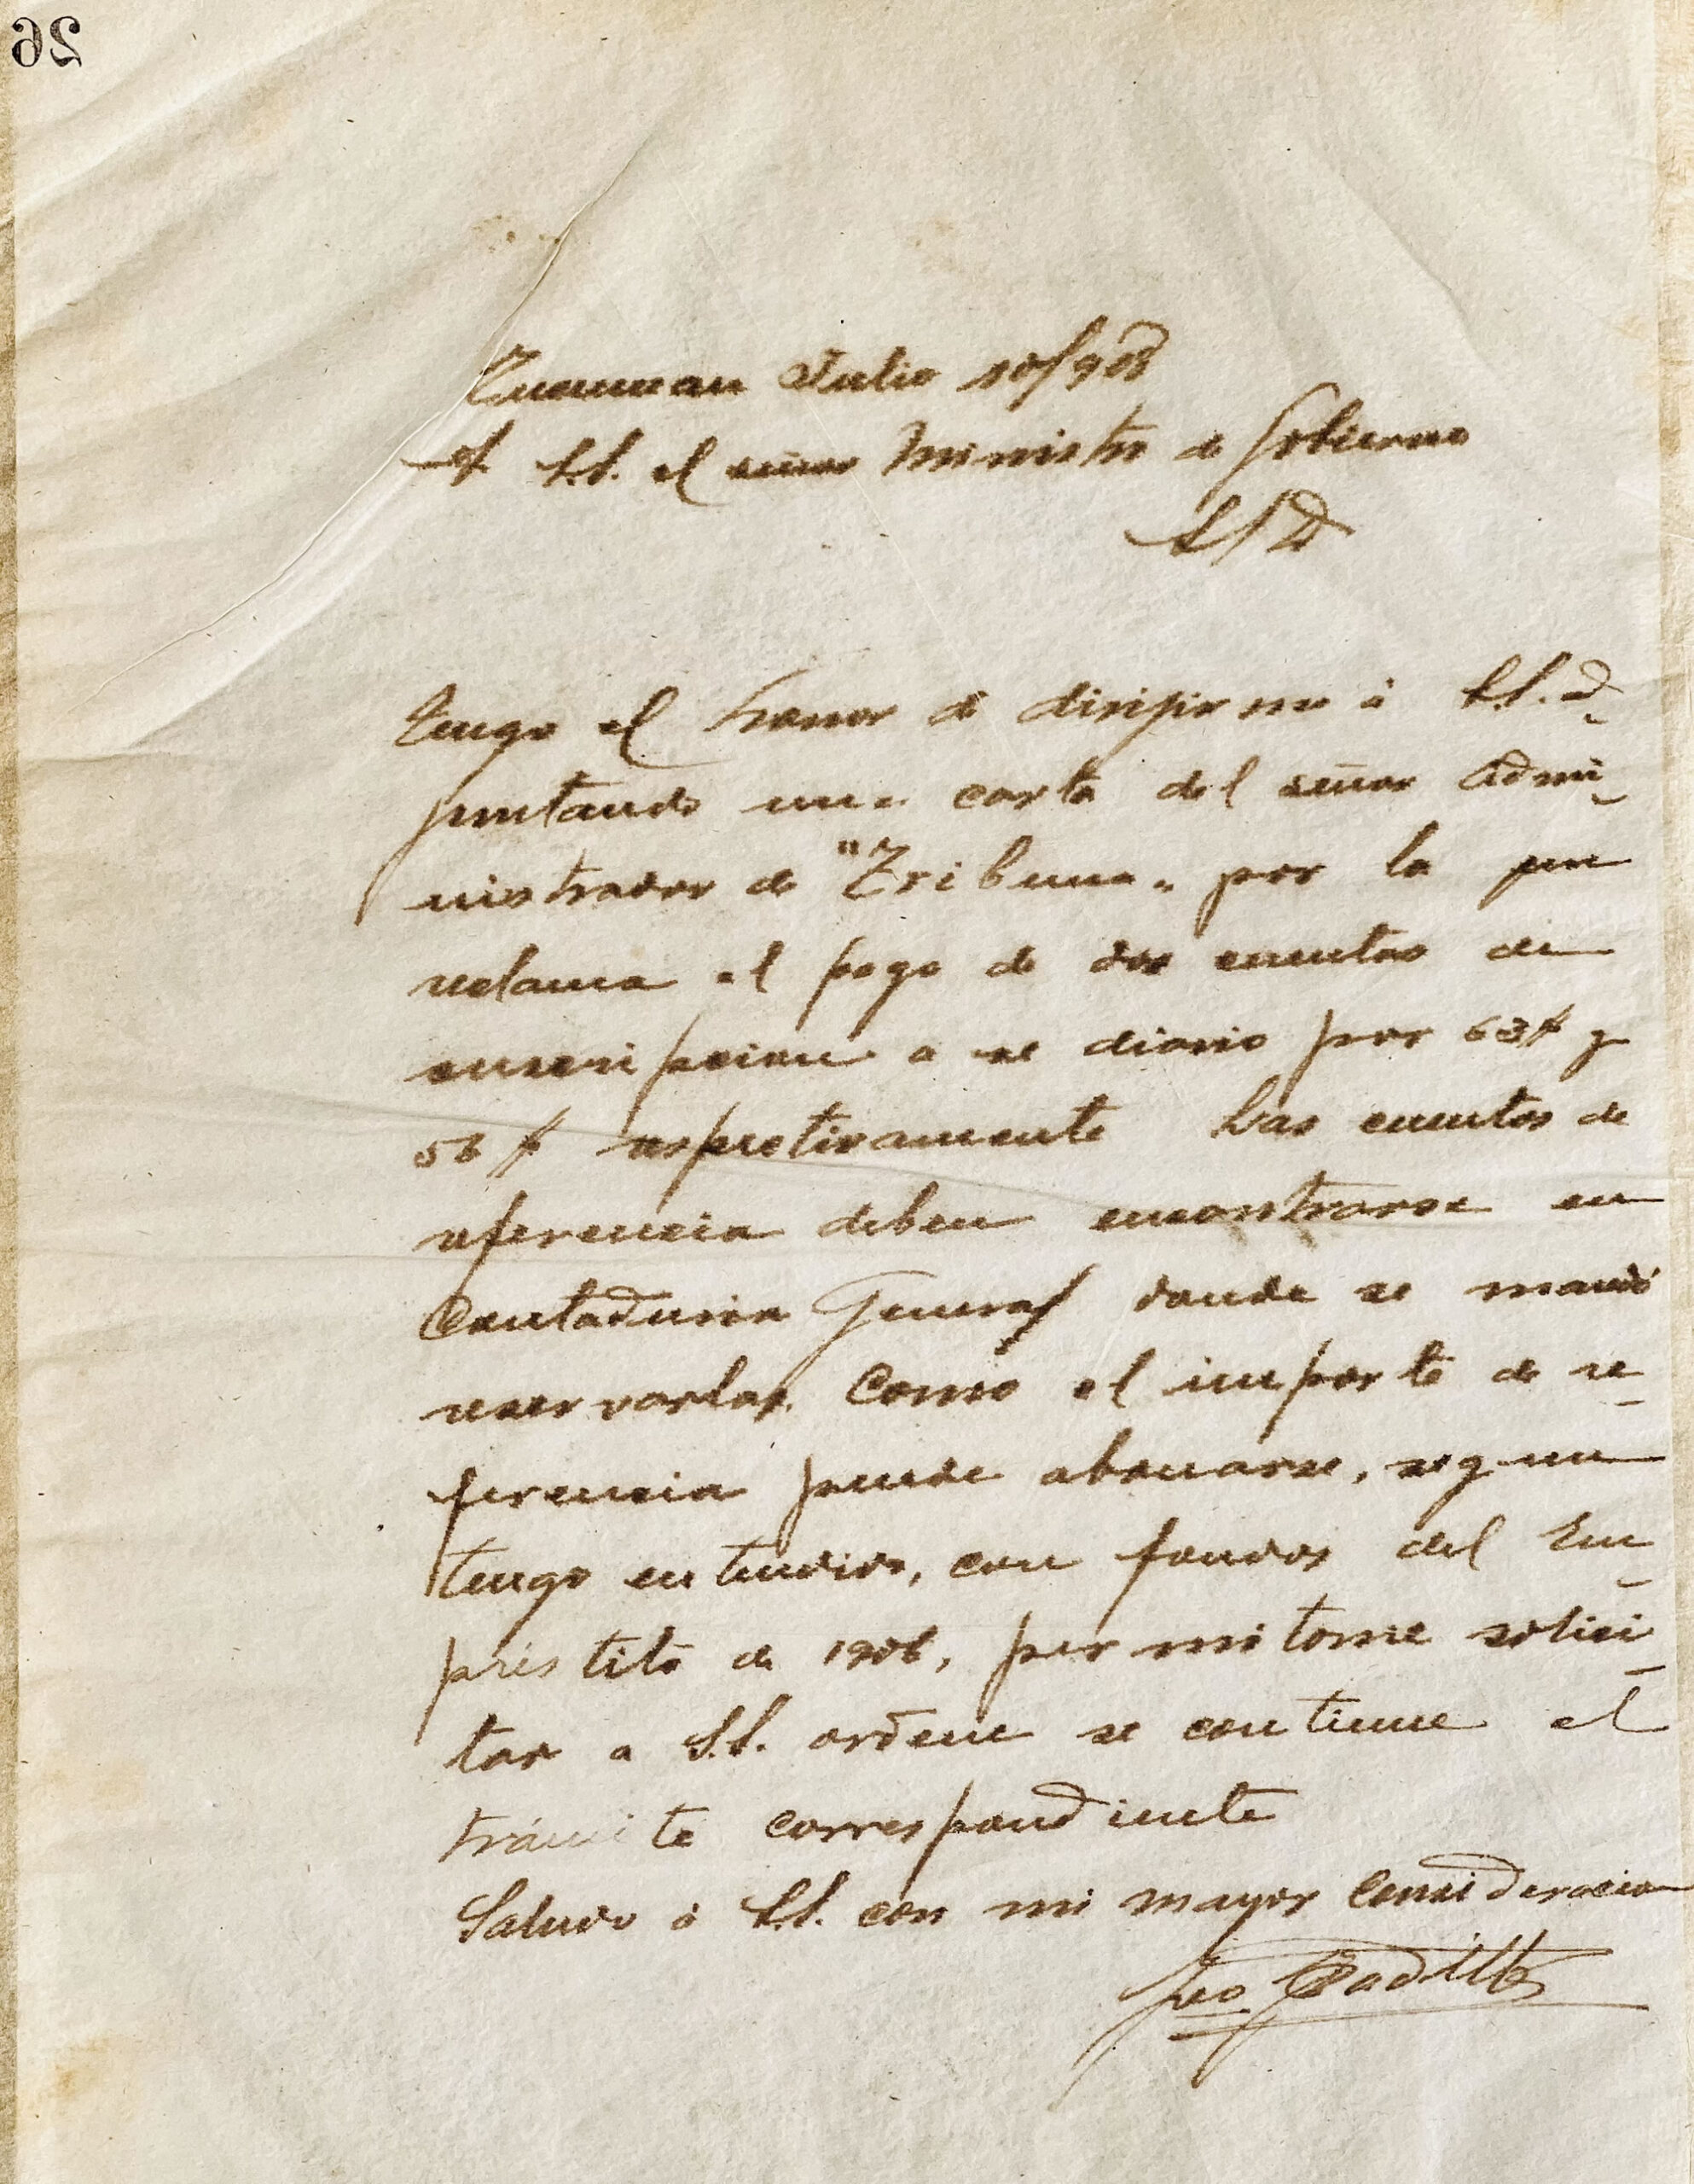 26
Tucuman Julio 10/908
A S.S. el señor Ministro de Gobierno
S/D
Tengo el honor de dirijirme á S.S. ad-
juntando una carta del señor Admi-
nistrador de "Tribuna" por la que
reclama el pago de dos cuentas de
suscripcion a ese diario por 63$ y
56$ respectivamente Las cuentas de
referencia deben encontrarse en
Contaduria General donde se mandó
reservarlas. Como el importe de re-
ferencia puede abonarse, segun
tengo entendido, con fondos del Em-
préstito de 1906, permitome solici-
tar a S.S. ordene se continue el
trámite correspondiente
Saludo á S.S. con mi mayor consideracion
Padilla